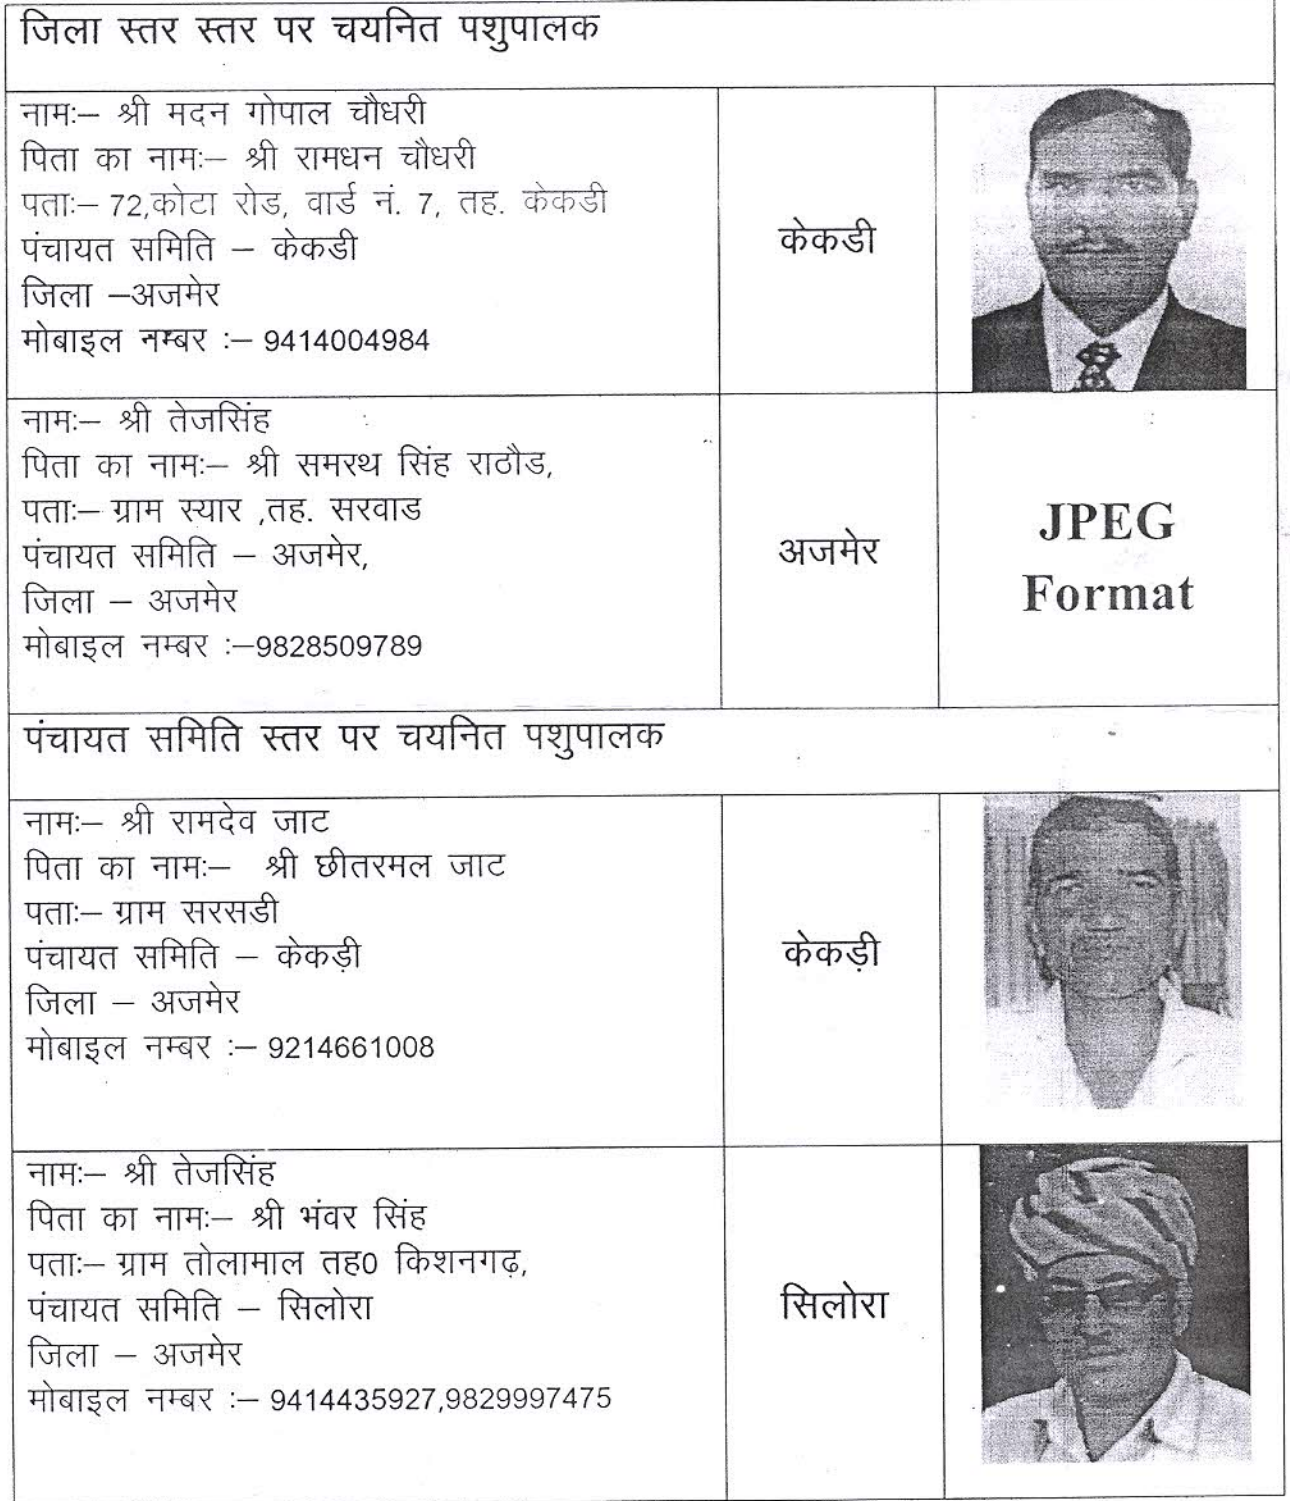 जिला स्तर स्तर पर चयनित पशुपालक
नामः– श्री मदन गोपाल चौधरी
पिता का नामः– श्री रामधन चौधरी
पताः– 72,कोटा रोड, वार्ड नं. 7, तह. केकडी
पंचायत समिति – केकडी
जिला –अजमेर
मोबाइल नम्बर :– 9414004984
केकडी
नामः– श्री तेजसिंह
पिता का नामः– श्री समरथ सिंह राठौड,
पताः– ग्राम स्यार ,तह. सरवाड
पंचायत समिति – अजमेर,
जिला – अजमेर
मोबाइल नम्बर :–9828509789
अजमेर
JPEG
Format
पंचायत समिति स्तर पर चयनित पशुपालक
नामः– श्री रामदेव जाट
पिता का नामः– श्री छीतरमल जाट
पताः– ग्राम सरसडी
पंचायत समिति – केकड़ी
जिला – अजमेर
मोबाइल नम्बर :– 9214661008
केकड़ी
नामः– श्री तेजसिंह
पिता का नामः– श्री भंवर सिंह
पताः– ग्राम तोलामाल तह0 किशनगढ़,
पंचायत समिति – सिलोरा
जिला – अजमेर
मोबाइल नम्बर :– 9414435927,9829997475
सिलोरा